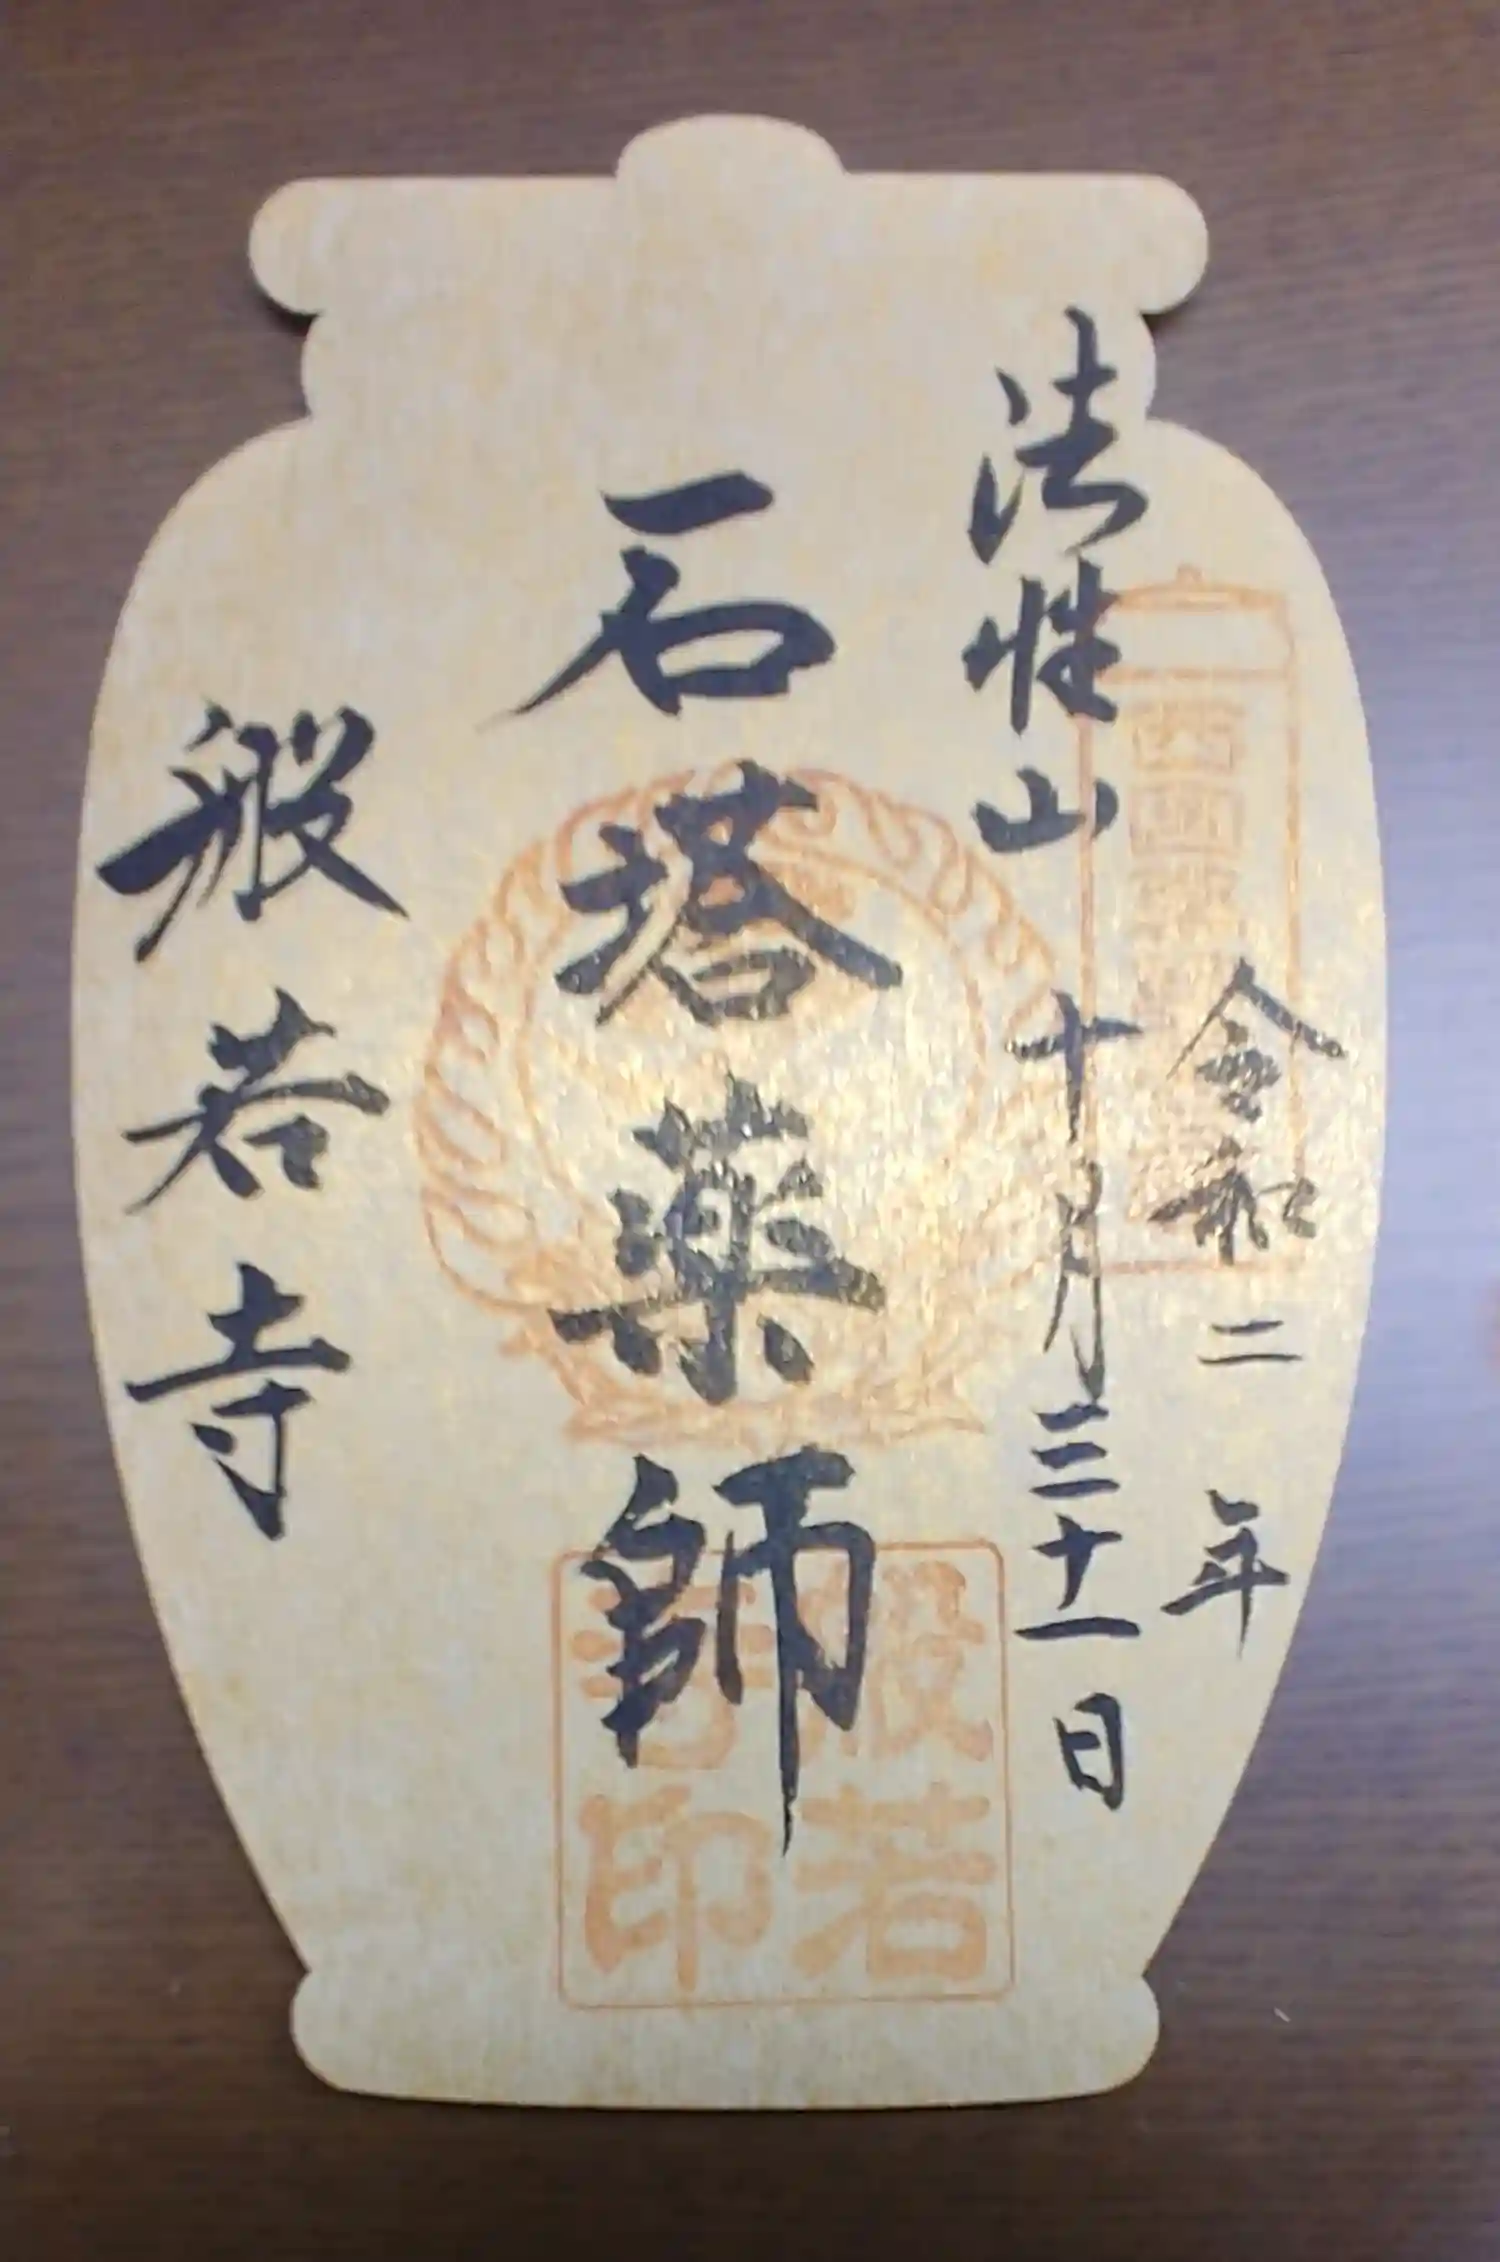 法性山
令和二年
十月三十一日
石塔薬師
般若寺
般若
寺印